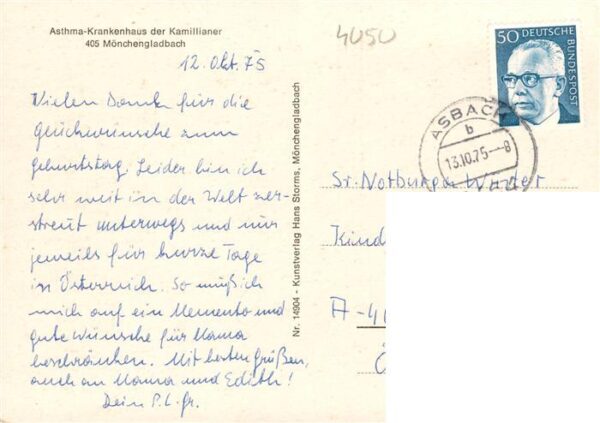 Asthma-Krankenhaus der Kamillianer
405 Mönchengladbach
12. Okt. 75
Vielen Dank für die
Glückwünsche zum
Geburtstag. Leider bin ich
sehr weit in der Welt zer-
streut unterwegs und nur
jeweils für kurze Tage
in Österreich. So muß ich
mich auf ein Memento und
gute Wünsche für Mama
beschränken. Mit besten Grüßen,
auch an Mama und Edith!
Dein P.L. fr.
Nr. 14904 - Kunstverlag Hans Storms, Mönchengladbach
4050
50 DEUTSCHE BUNDESPOST
ASBACH
b
13.10.75-8
Sr. Notburga
Kind
A-4